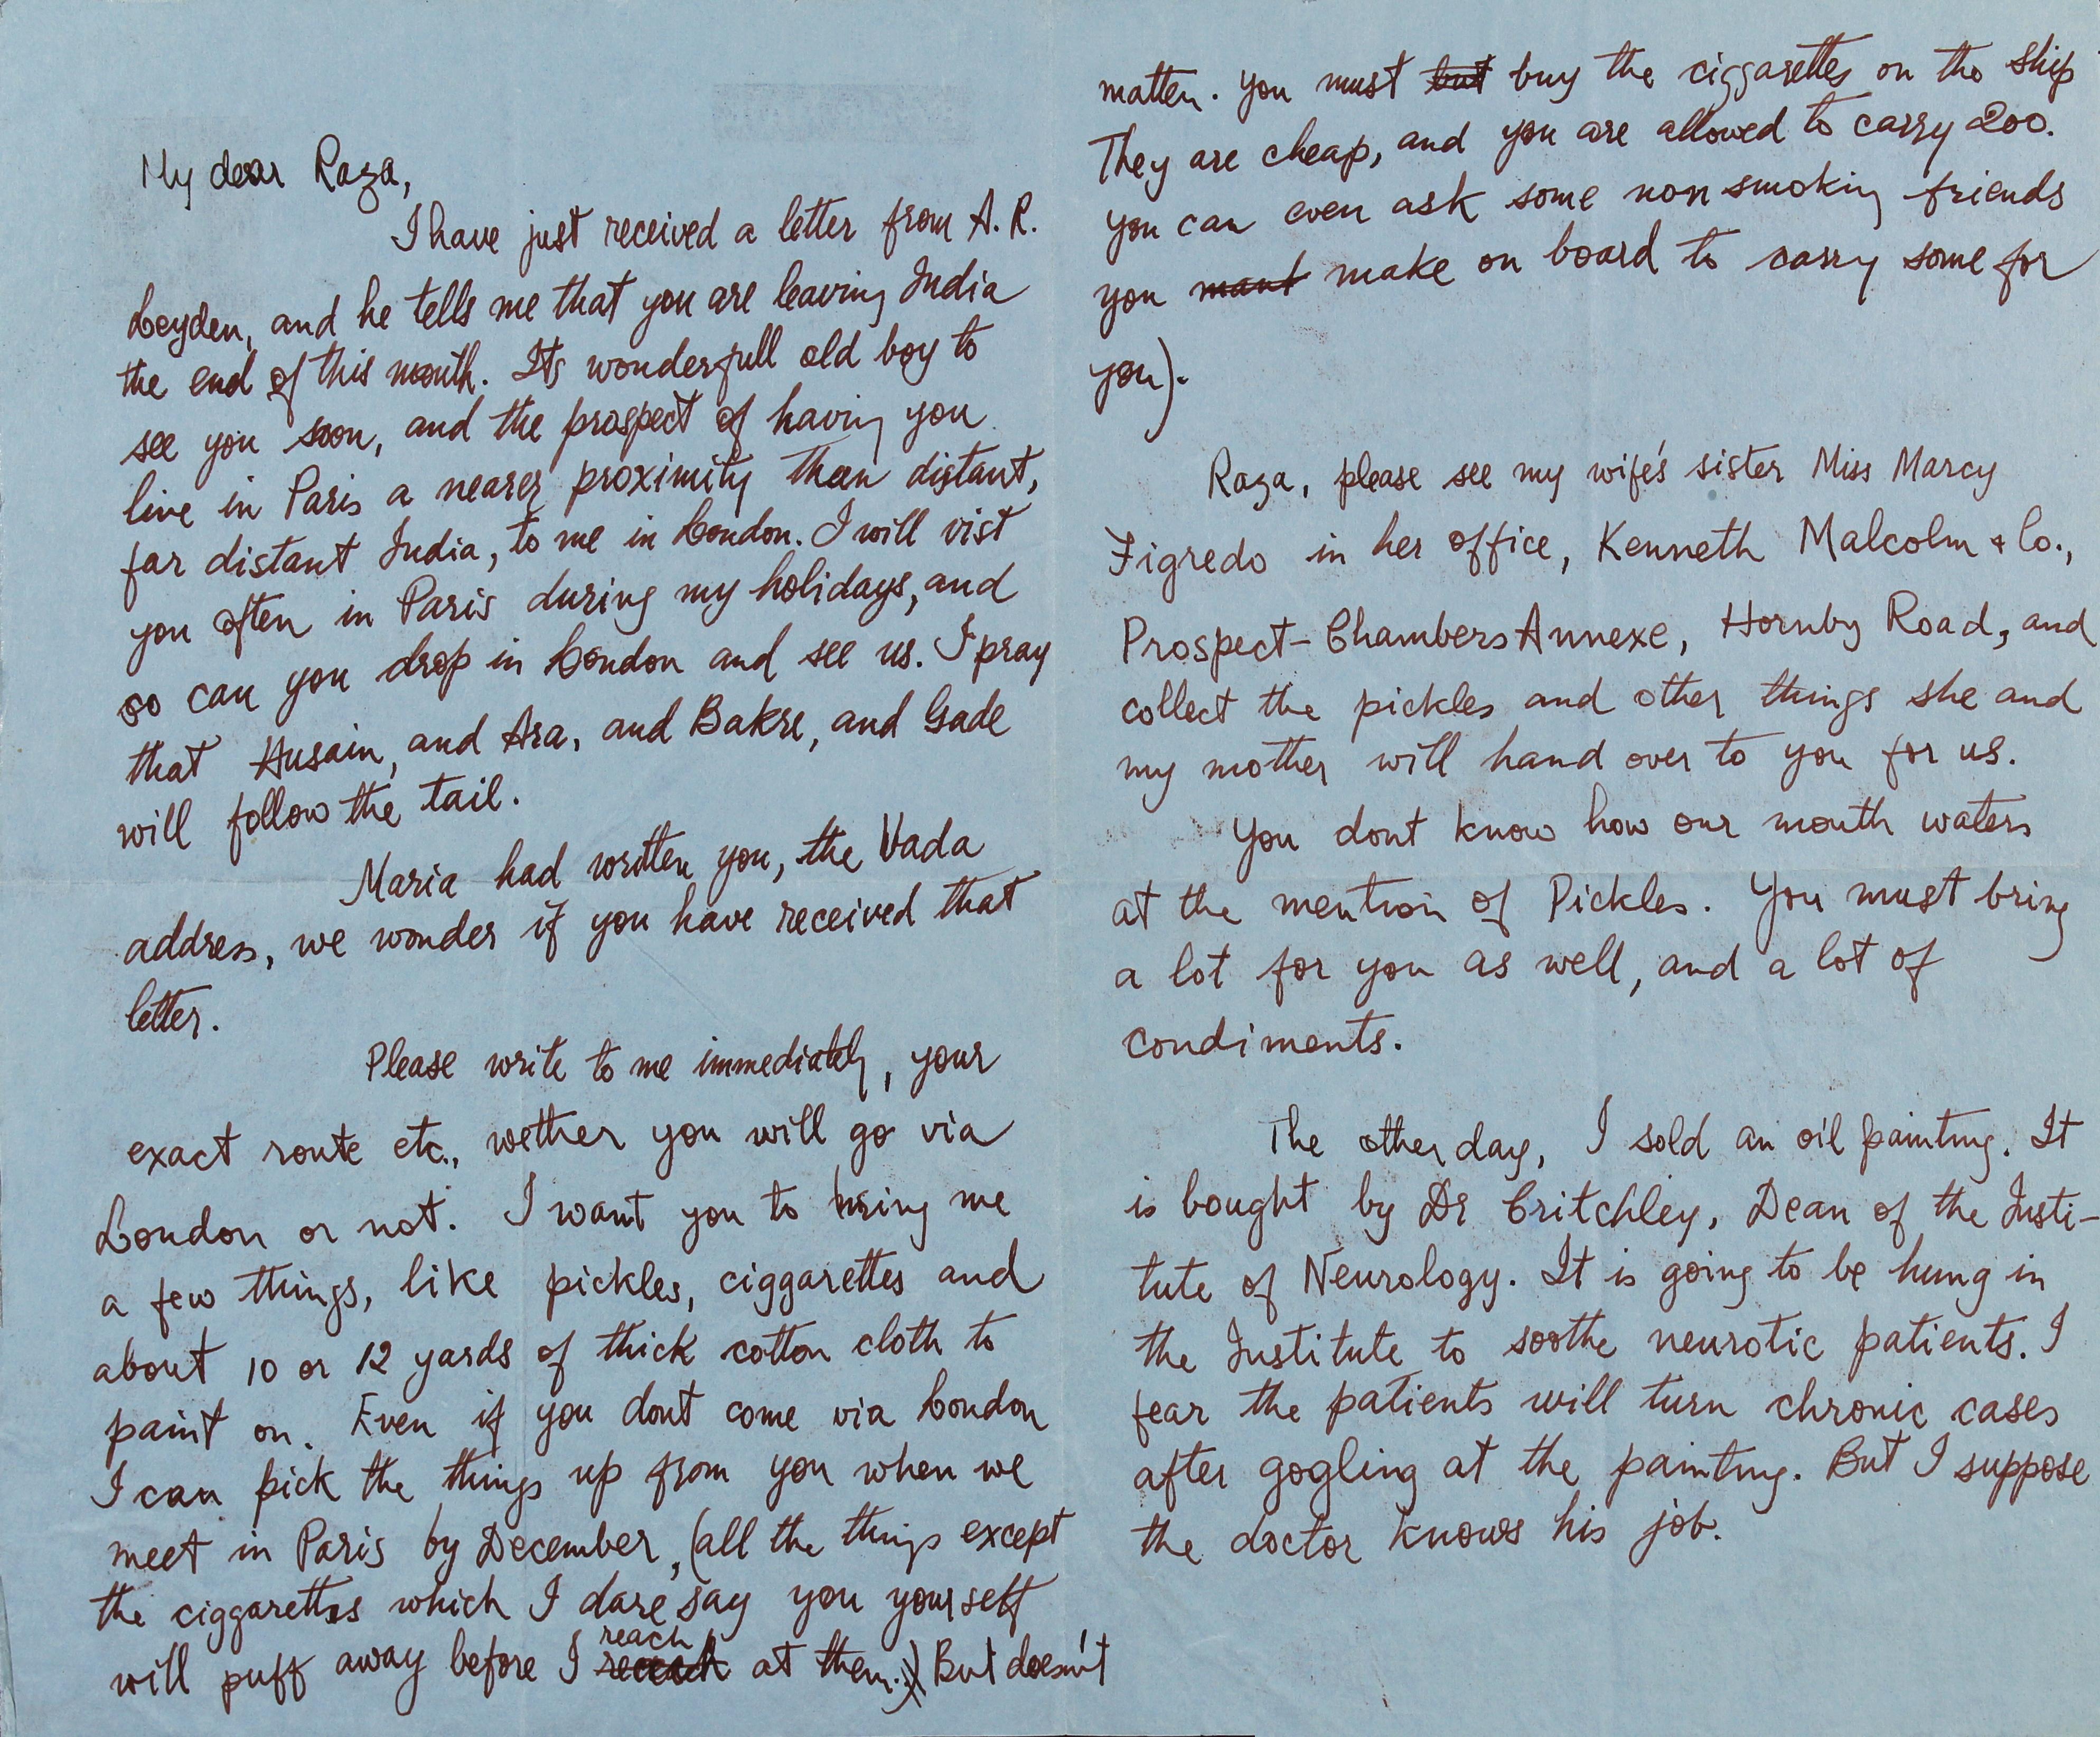 My dear Raza,
I have just received a letter from A. R.
Leyden, and he tells me that you are leaving India
the end of this month. Its wonderfull old boy to
see you soon, and the prospect of having you
live in Paris a nearer proximity than distant,
far distant India, to me in London. I will vist
you often in Paris during my holidays, and
so can you drop in London and see us. I pray
that Husain, and Ara, and Bakre, and Gade
will follow the tail.
Maria had written you, the Vada
address, we wonder if you have received that
letter.
Please write to me immediately, your
exact route etc., wether you will go via
London or not. I want you to bring me
a few things, like pickles, ciggarettes and
about 10 or 12 yards of thick cotton cloth to
paint on. Even if you dont come via London
I can pick the things up from you when we
meet in Paris by December, (all the things except
the ciggarettes which I dare say you yourself
will puff away before I reach at them.) But doesn't
matter. You must but buy the ciggarettes on the ship
They are cheap, and you are allowed to carry 200.
You can even ask some non smoking friends
you mant make on board to carry some for
you).
Raza, please see my wife's sister Miss Marcy
Figredo in her office, Kenneth Malcolm & Co.,
Prospect-Chambers Annexe, Hornby Road, and
collect the pickles and other things she and
my mother will hand over to you for us.
You dont know how our mouth waters
at the mention of Pickles. You must bring
a lot for you as well, and a lot of
condiments.
The other day, I sold an oil painting. It
is bought by Dr Critchley, Dean of the Insti-
tute of Neurology. It is going to be hung in
the Institute to soothe neurotic patients. I
fear the patients will turn chronic cases
after gogling at the painting. But I suppose
the doctor knows his job.